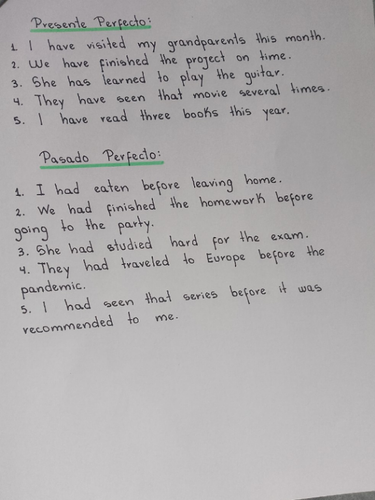 Presente Perfecto:
1. I have visited my grandparents this month.
2. We have finished the project on time.
3. She has learned to play the guitar.
4. They have seen that movie several times.
5. I have read three books this year.
Pasado Perfecto:
1. I had eaten before leaving home.
2. We had finished the homework before
going to the party.
3. She had studied hard for the exam.
4. They had traveled to Europe before the
pandemic.
5. I had seen that series before it was
recommended to me.